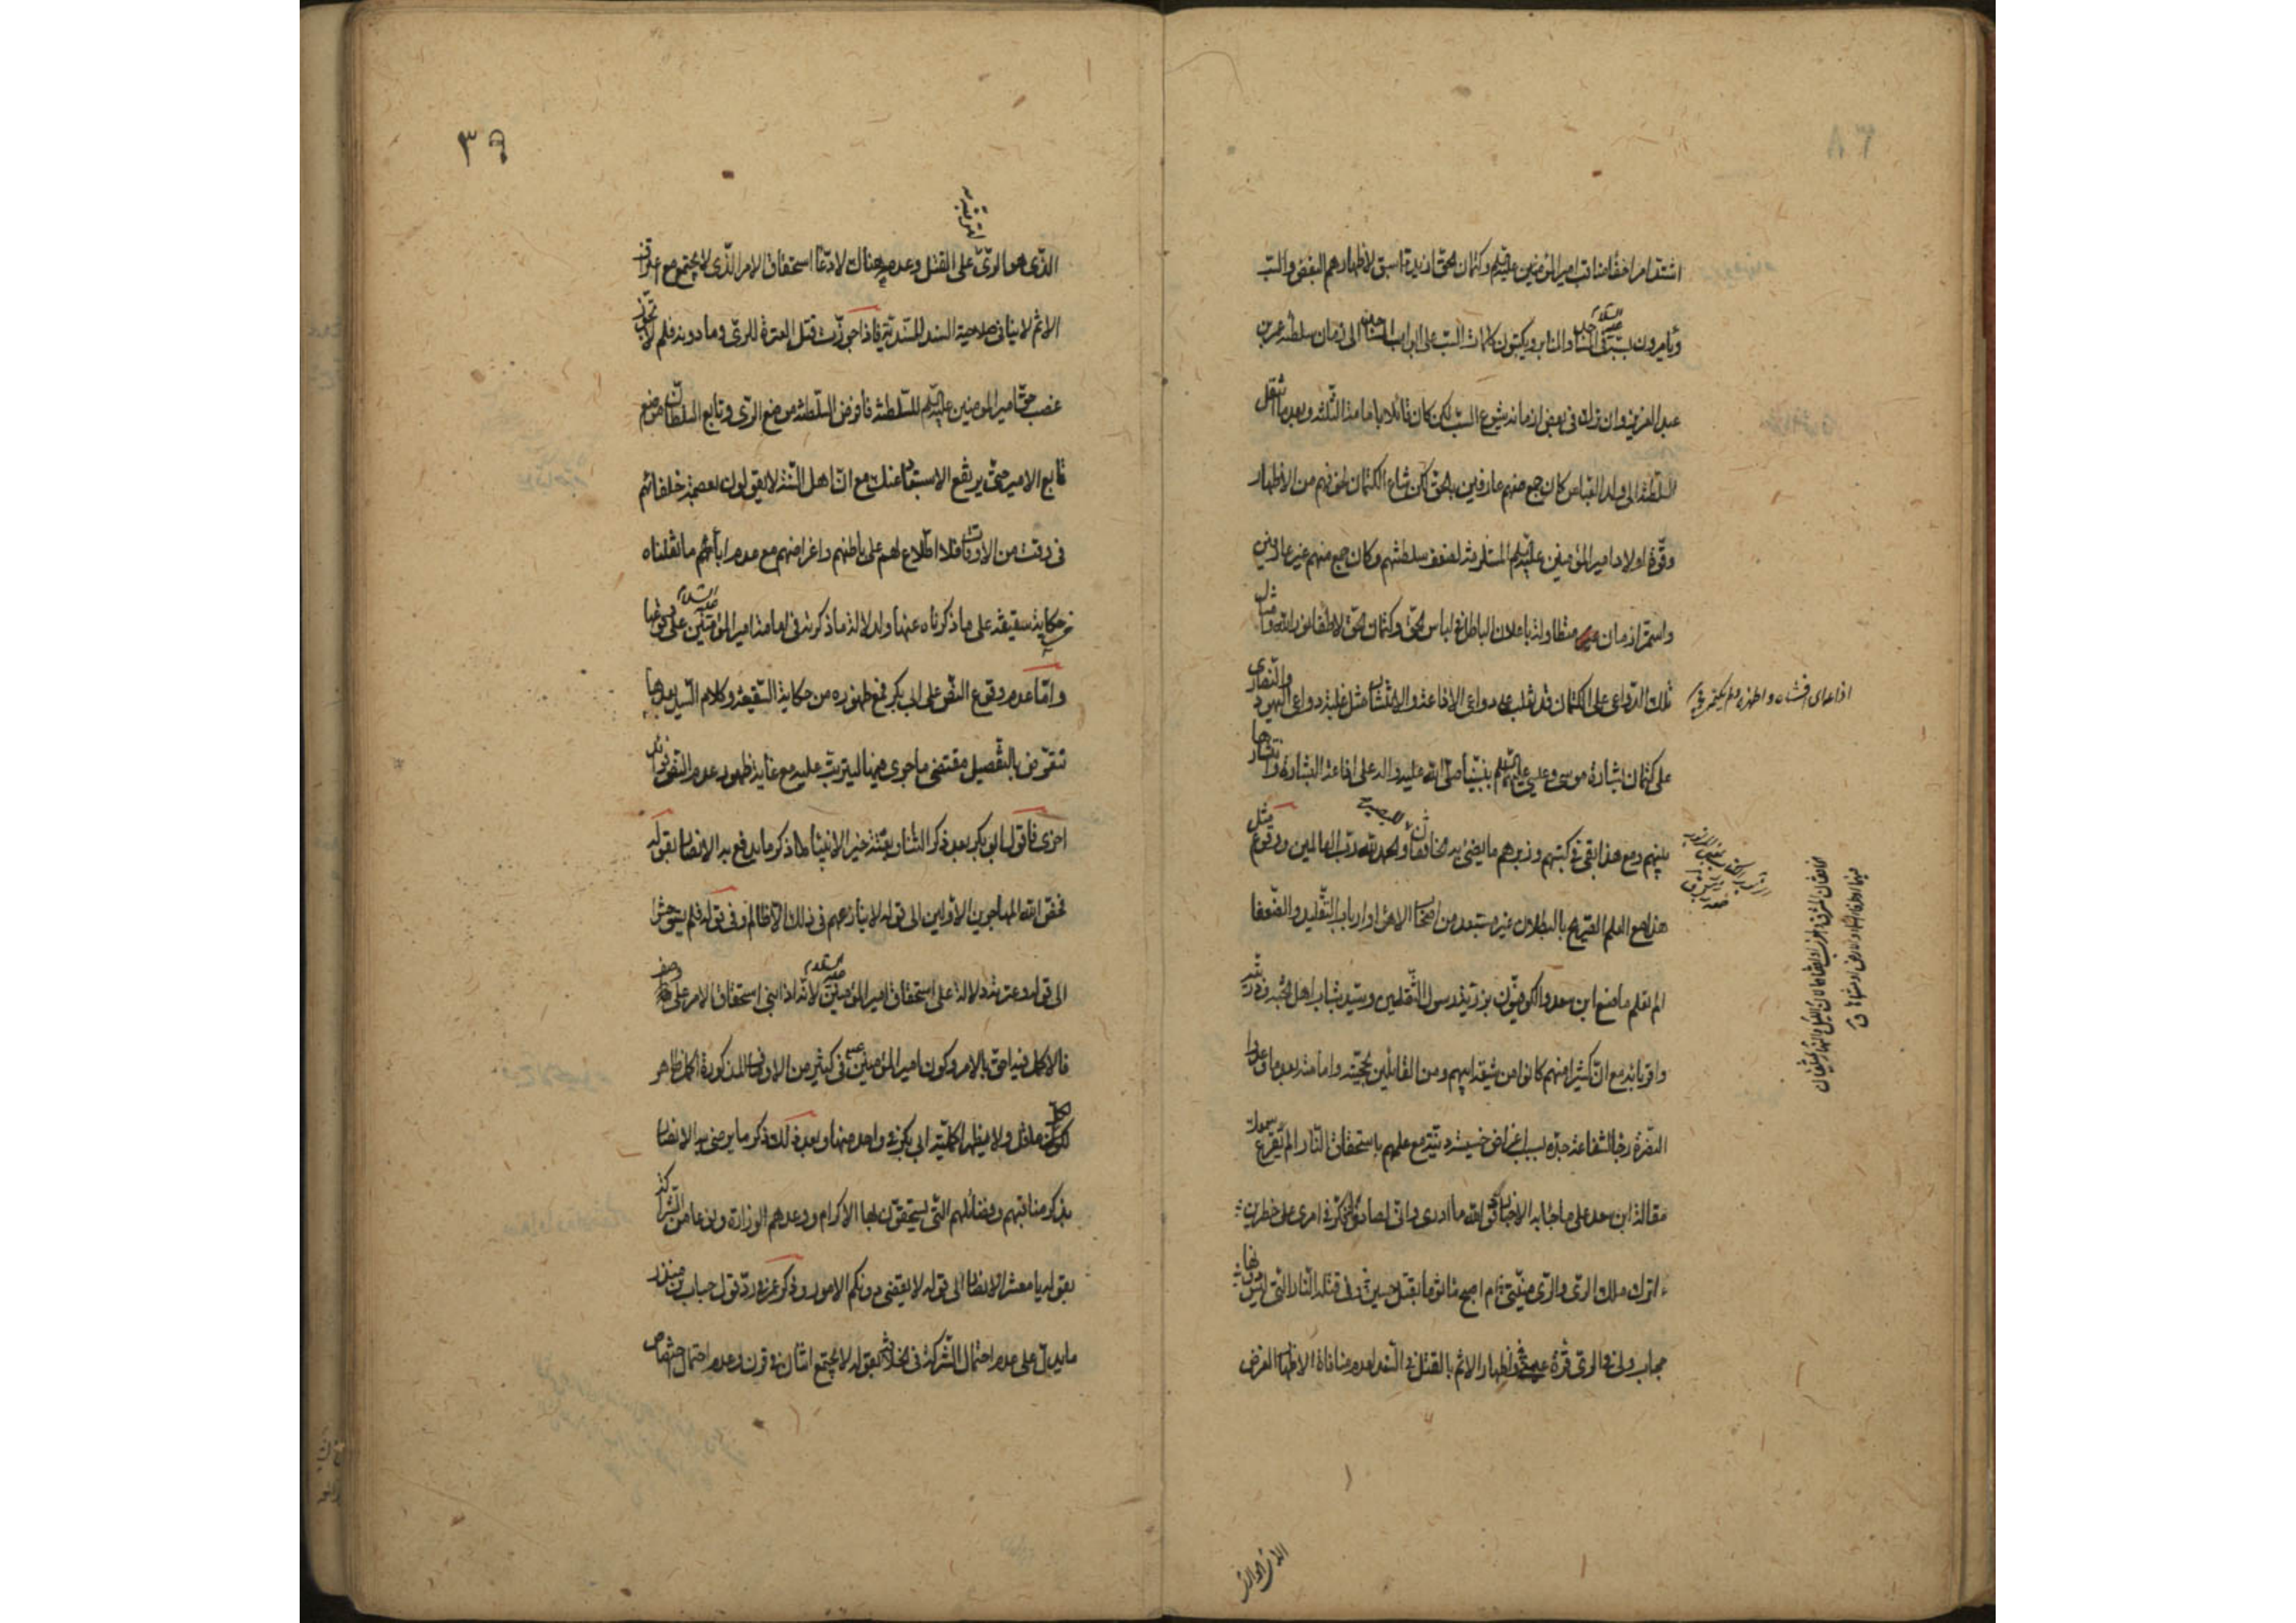 اشتد امر اخفا مناقب امير المؤمنين عليه السلم وكتمان الحق ازيد مما سبق لاظهارهم البغض والسب
ويأمرون بسبه على المنابر ويكتبون كلمات السب على ابواب المساجد الى زمان سلطنة عمر بن
عبد العزيز وان زال في بعض ازمانه شيوع السب لكن كان قائلا بامامة الثلثة وبعد ما انتقل
السلطنة الى ولد العباس كان جمع منهم عارفين بالحق لكن شاع الكتمان لخوفهم من الاظهار
وقوة اولاد امير المؤمنين عليه السلم المستلزمة لضعف سلطنتهم وكان جمع منهم غير عارفين
واستمر ازمان متطاولة باعلان الباطل في لباس الحق وكتمان الحق لاطفاء نور الله وامثال
تلك الدواعي على الكتمان قد تغلب على دواعي الاذاعة والافشاء مثل غلبة دواعي اليهود والنصارى
على كتمان بشارة موسى وعيسى عليهما السلم بنبينا صلى الله عليه واله على اذاعة البشارة وانتشارها
بينهم ومع هذا بقي في كتبهم وزبرهم ما يضئ به الخافقان والحمد لله رب العالمين ووقوع مثل
هذا مع العلم الصريح بالبطلان غير مستبعد من اصحاب الاهواء وارباب التقليد والضعفا
الم تعلم ما صنع ابن سعد والكوفيون بذرية رسول الثقلين وسيد شباب اهل الجنة وذريته
واقربائه مع ان كثيرا منهم كانوا من شيعة ابيهم ومن القائلين بحجيته وامامته بعد ما وعدوا
النصرة رجاء لشفاعة جده بسبب اغراض خسيسة دنية مع علمهم باستحقاق النار الم يقرع سمعك
مقالة ابن سعد على ما جاء به الاخبار فوالله ما ادري واني لصادق افكر في امري على خطرين
ءاترك ملك الري والري منيتي ام اصبح مأثوما بقتل حسين وفي قتله النار التي ليس دونها
حجاب ولي في الري قرة عين فاظهار الاثم بالقتل في السند لعدم منافاة الاظهار الغرض
الان اوالد
٣٩
الذي هو الري على القتل وعدمه هناك لادعاء استحقاق الامر الذي لا يجتمع مع اعتراف
الاثم لا ينافي صلاحية السند للسندية فاذا جوزت قتل العترة للري وما دونه فلم لا تجوز
غصب حق امير المؤمنين عليه السلم للسلطنة فافرض السلطنة موضع الري وتابع السلطان موضع
تابع الامير حتى يرتفع الاستبعاد عنك مع ان اهل السنة لا يقولون بعصمة خلفائهم
في وقت من الاوقات فلا اطلاع لهم على باطنهم واغراضهم مع عدم اباء ما نقلناه
من حكاية سقيفة على ما ذكرناه عنها ولدلالة ما ذكرته في امامة امير المؤمنين عليه السلام على وقوعها
واما عدم وقوع النص على ابي بكر فمع ظهوره من حكاية السقيفة وكلام السيد بعدها
نتعرض بالتفصيل مقتضى ما جرى هيهنا ليترتب عليه مع غاية ظهور عدم النص فوائد
اخرى فاقول ابو بكر بعد ذكر الثناء وبعثة خير الانبياء لما ذكر ما يدفع به الانصار بقوله
فخص الله المهاجرين الاولين الى قوله لا ينازعهم في ذلك الا ظالم وفي قوله فلم يستوحشوا
الى قوله وعترته دلالة على استحقاق امير المؤمنين عليه السلام لانه اذا ابتنى استحقاق الامر على
فالاكمل فيه احق بالامر وكون امير المؤمنين في كثير من الاوصاف المذكورة اكمل ظاهر
لكل عاقل ولا يظهر اكملية ابي بكر في واحد منها وبعد ذلك ذكر ما يرضى به الانصار
بذكر مناقبهم وفضائلهم التي يستحقون لها الاكرام ووعدهم الوزارة ونوعا من الشركة
بقوله يا معشر الانصار الى قوله لا يقضى دونكم الامور وذكر عمر في رد قول حباب بن منذر
ما يدل على عدم احتمال الشركة في الخلافة بقوله لا يجتمع اثنان في قرن وعدم احتمال اختصاص